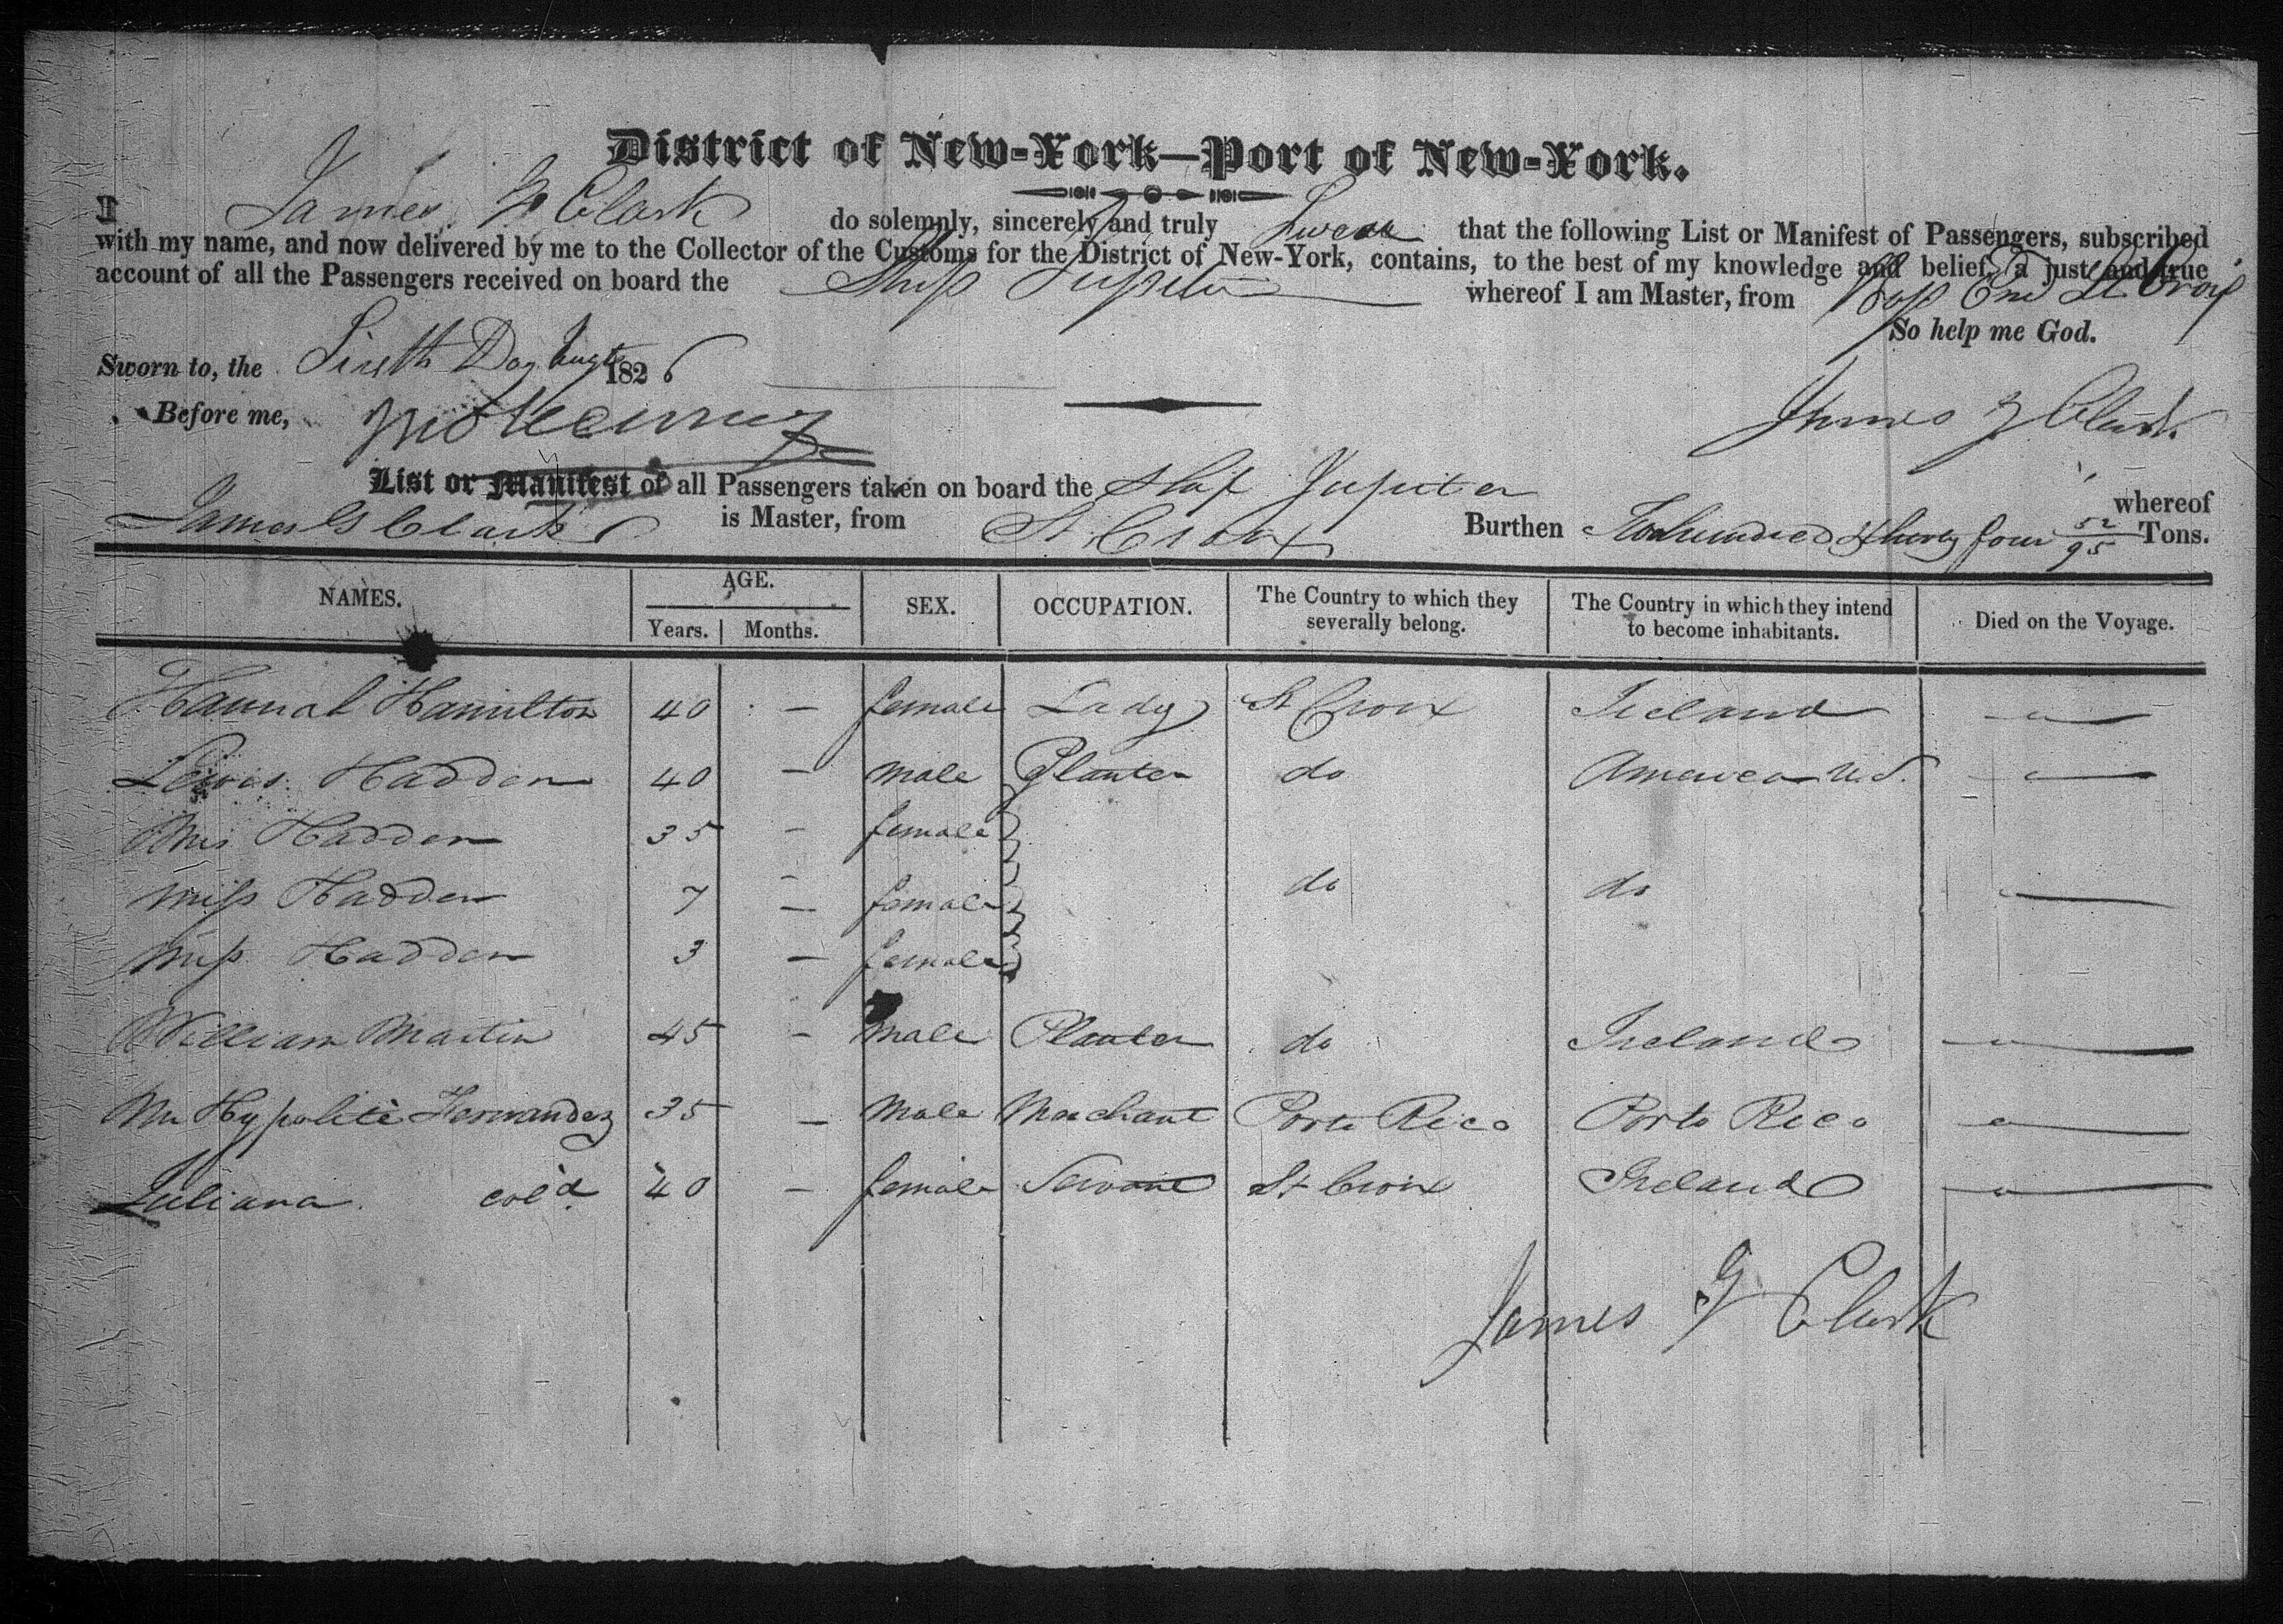 District of New-York—Port of New-York.
I James G Clark do solemnly, sincerely and truly Swear that the following List or Manifest of Passengers, subscribed
with my name, and now delivered by me to the Collector of the Customs for the District of New-York, contains, to the best of my knowledge and belief, a just and true
account of all the Passengers received on board the Ship Jupiter whereof I am Master, from End St Croix
So help me God.
Sworn to, the Sixth Day Augt 1826
Before me,
James G Clark
List or Manifest of all Passengers taken on board the Ship Jupiter whereof
James G Clark is Master, from St Croix Burthen Two hundred & thirty four 52/95 Tons.
NAMES. AGE. SEX. OCCUPATION. The Country to which they severally belong. The Country in which they intend to become inhabitants. Died on the Voyage.
Years. Months.
Hannah Hamilton 40 — female Lady St Croix Ireland —
Lewis Hadden 40 — male Planter do America U.S. —
Mrs Hadden 35 — female
Miss Hadden 7 — female do do —
Miss Hadden 3 — female
William Martin 45 — male Planter do Ireland —
Mr Hypolite Hernandez 35 — male Merchant Porto Rico Porto Rico —
Juliana col'd 40 — female Servant St Croix Ireland —
James G Clark